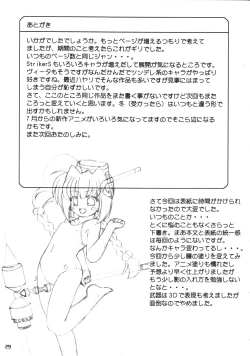 あとがき
いかがでしたでしょうか。もっとページが増えるつもりで考えて
ましたが、期間のこと考えたらこれがギリでした。
いつものページ数と同じジャン・・・。
StrikerSもいろいろキャラが増えだして展開が気になるところです。
ヴィータもそうですがなんだかんだでツンデレ系のキャラがやっぱり
好きですね。最近ハヤリでそんな作品も多いですが見事にはまって
しまう自分が恥ずかしいです。
さて、ここのところ同じ作品をまた書く事がないですけど次回もまた
ころっと変えていくと思います。冬（受かったら）はいつもと違う形で
出すかもしれません。
７月からの新作アニメがいろいろ気になってますのでそこら辺になる
かもです。
また次回おたのしみに。
さて今回は表紙に時間がかけられ
なかったので大変でした。
いつものことか・・・
とくに悩むこともなくさらっと
下書き。まあ本文と表紙の統一感
は毎回のようにないですが。
なんかキャラ変わってるし・・・。
今回から少し瞳の塗りを変えてみ
ました。アニメ塗りも慣れたし
予想より早く仕上がりましたが
もう少し影の入れ方を勉強しない
となと・・・。
武器は３Ｄで表現も考えましたが
面倒なのでやめました。